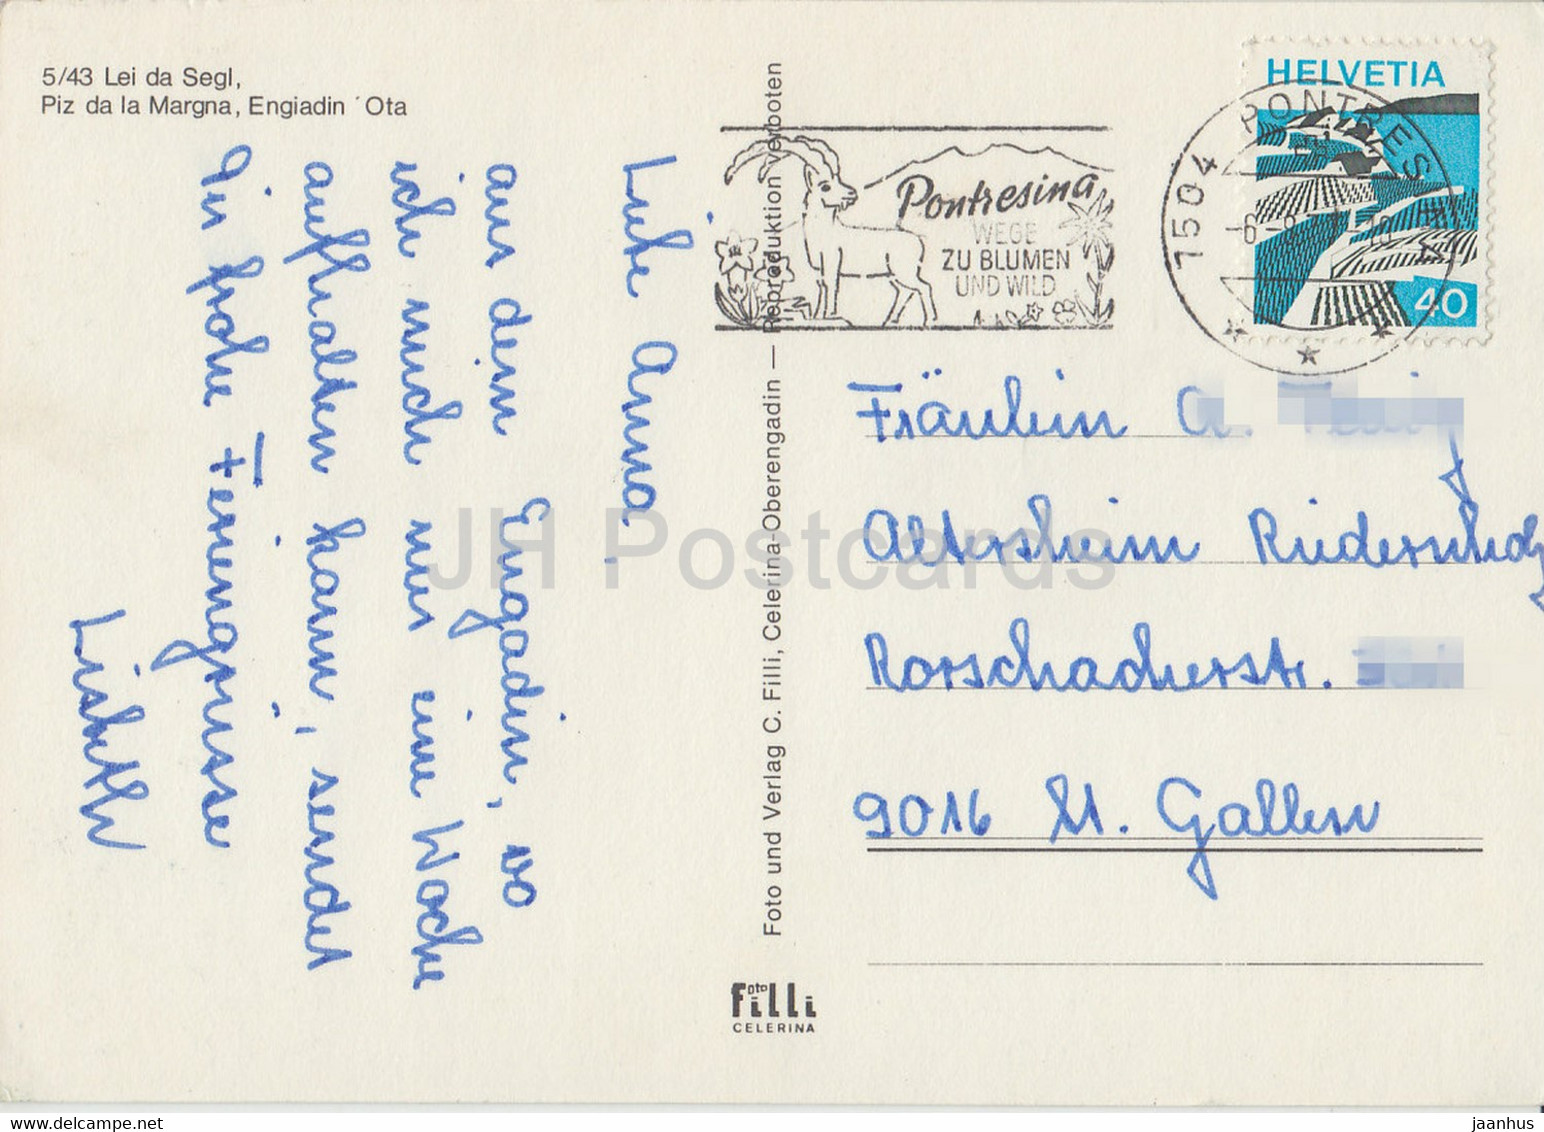 5/43 Lei da Segl,
Piz da la Margna, Engiadin 'Ota
Liebe Anna,
aus dem Engadin, wo
ich mich nur eine Woche
aufhalten kann, sendet
Dir frohe Feriengrüsse
Lisbeth
Foto und Verlag C. Filli, Celerina-Oberengadin — Reproduktion verboten
Foto Filli
CELERINA
Pontresina
WEGE
ZU BLUMEN
UND WILD
1504 PONTRESINA
-6.-8.
HELVETIA
40
Fräulein A.
Altersheim Riederenholz
Rorschacherstr.
9016 St. Gallen
JH Postcards
jaanhus.delcampe.net